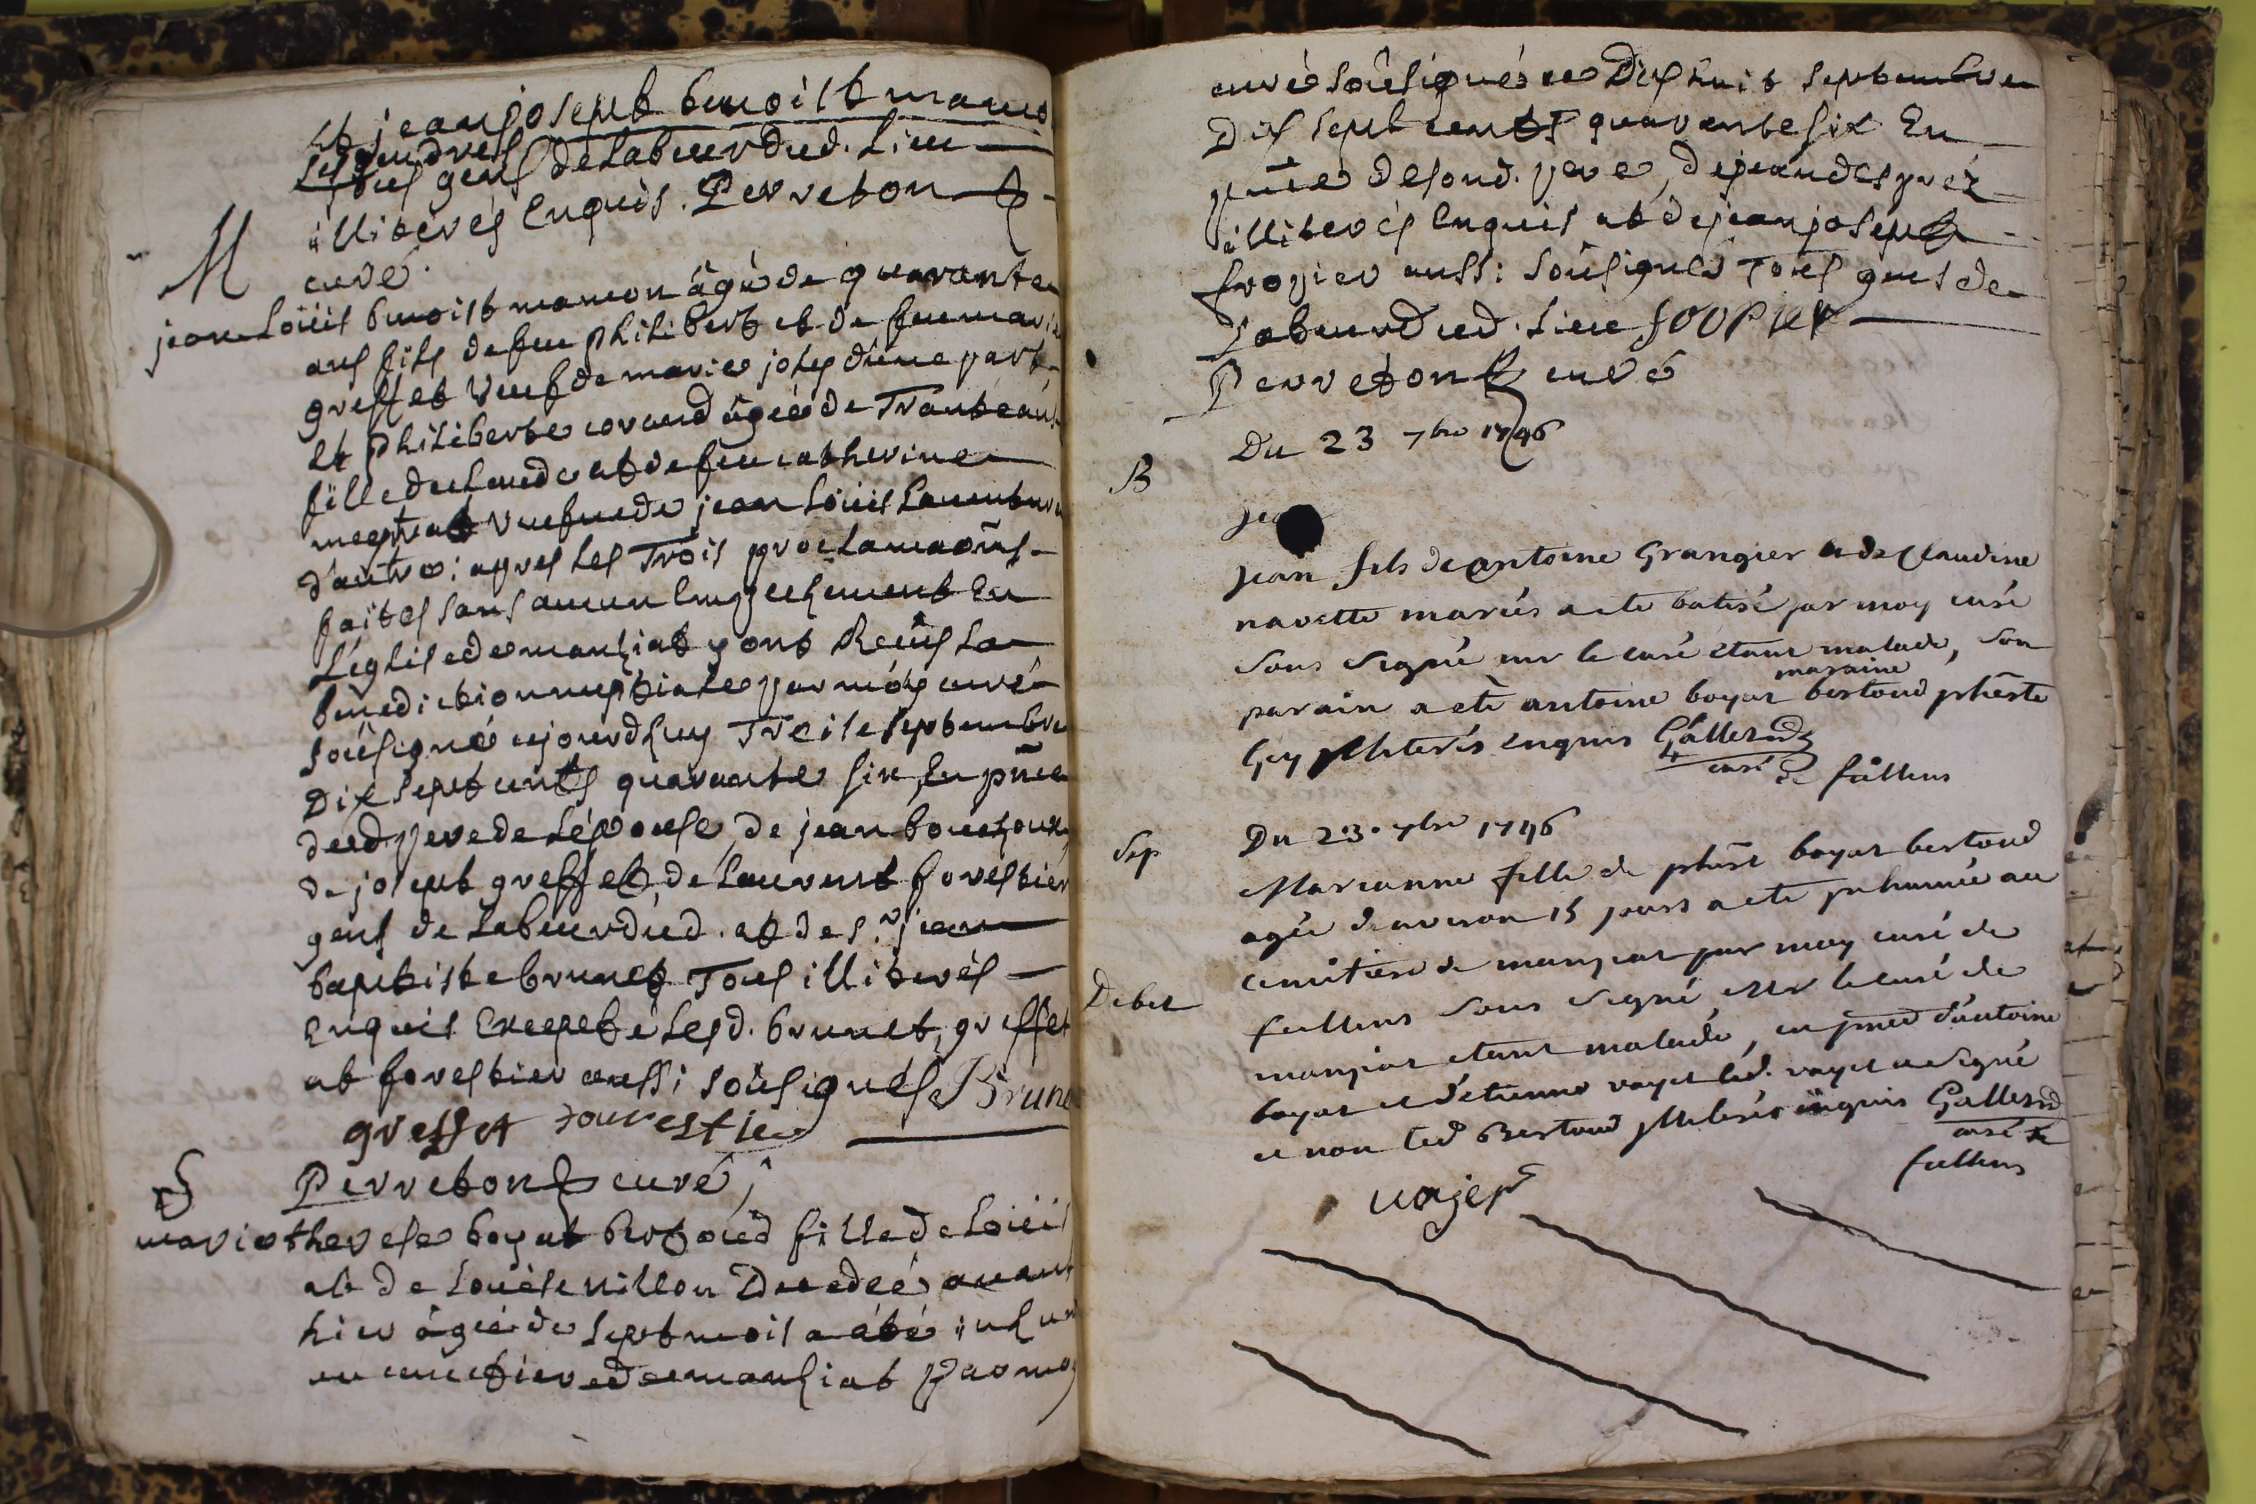 et jean joseph benoist mamo
ses gendres
tous gens de labeur dud. lieu
illiterés enquis. Perreton
curé.
M
jean Loüis benoist mamon âgé de quarante
ans fils de feu philibert et de feue marie
greffet veuf de marie joly d'une part
et philiberte corand âgée de Trente ans
fille de claude et de feue catherine
veufue de jean loüis
d'autre: apres les Trois proclamaõns
faites sans aucun empeschement En
l'église de manziat y ont Reçus la
benediction nuptiale par moy curé
soûsigné ajourdhuy Treise septembre
Dix sept cents quarante six, En pñce
dud. pere de l'épouse, de jean bouchoux,
de joseph greffet, de Laurent forestier
gens de labeur dud. et de s.r jean
baptiste brunet Tous illiterés
enquis Excepté lesd. brunet, greffet
et forestier aussi soûsignés Brune
greffet fourestie
Perreton curé
S
marie therese boyat bertoud fille de Loüis
et de Loüise villon Decedée avant
hier âgée de sept mois a été inhum
au cimetiere de manziat par moy
curé soûsigné ce Dix huit septembre
Dix sept cents quarante six En
pñce de sond. pere, de jean desprez
illiterés enquis et de jean joseph
frogier aussi soûsigné Tous gens de
Labeur dud. lieu
Perreton curé
B
Du 23 7bre 1746
jea
jean fils de antoine Grangier et de Claudine
navette mariés a ete batisé par moy curé
sous signé mr le curé étant malade, son
parain a eté antoine boyat maraine bertoud phẽrte
Gey illiterés enquis Gallerand
curé de feillens
Sep
Du 23. 7bre 1746
Marianne fille de phẽrt boyat bertoud
agée d'environ 15 jours a ete inhumée au
cimitiere de manziat par moy curé de
Debet
feillens sous signé, Mr le curé de
manziat etant malade, en pñce d'antoine
boyat et d'etienne voyet led. voyet a signé
et non led Bertoud illiterés enquis Gallerand
curé de
feillens
uojer